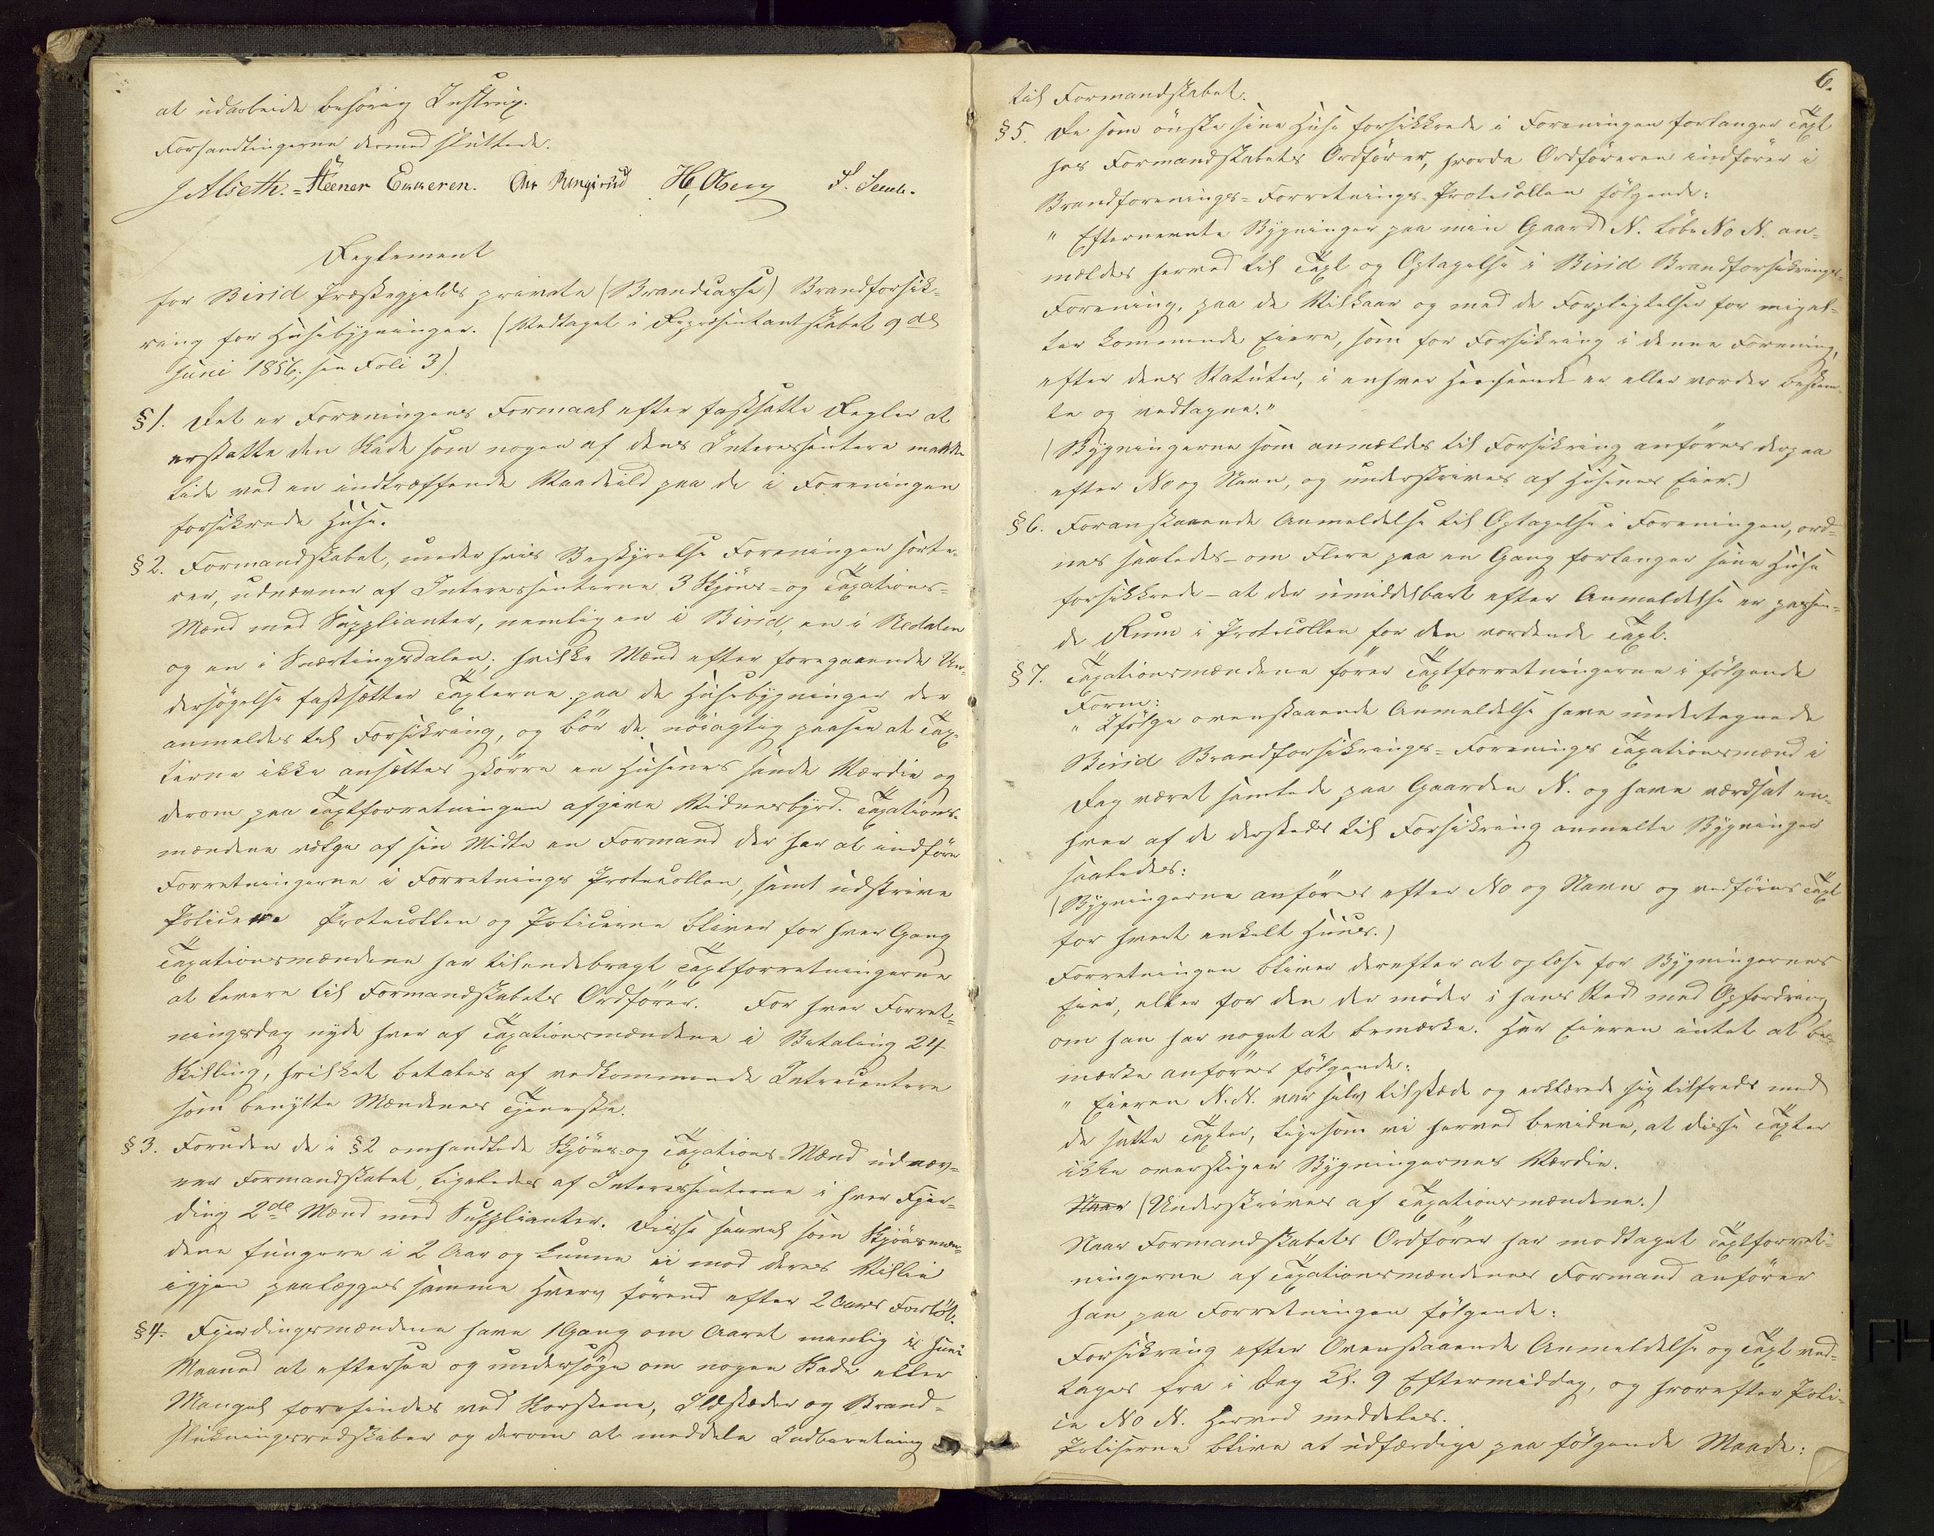 at udarbeide behörig Instrux.
Forhandlingerne dermed sluttede.
J Alseth. Steener Enneren. Ole Rongsrud H. Oberg S. Semb.
Reglement
for Birid Præstegjelds private (Brandcasse) Brandforsik-
ring for Husebygninger. (Vedtaget i Repræsentantskabet 9de
Juni 1856; see Foli 3)
§ 1. Det er Foreningens Formaal efter fastsatte Regler at
erstatte den Skade som nogen af dens Interessentere maatte
lide ved en indtræffende Vaadeild paa de i Foreningen
forsikrede Huse.
§ 2. Formandskabet, under hvis Bestyrelse Foreningen sorte-
rer, udnævner af Interessenterne 3 Skjöns- og Taxations-
Mænd med Supplianter, nemlig en i Birid, en i Redalen
og en i Snærtingsdalen; hvilke Mænd efter foregaaende Un-
dersögelse fastsætter Taxterne paa de Husebygninger der
anmeldes til Forsikring, og bör de nöiagtig paasee at Tax-
terne ikke ansættes större en Husenes sande Værdie og
derom paa Taxtforretningen afgive Vidnesbyrd. Taxations-
mændene vælge af sin Midte en Formand der har at indföre
Forretningerne i Forretnings Protocollen, samt udskrive
Policerne Protocollen og Policerne bliver for hver Gang
Taxationsmændene har tilendebragt Taxtforretningerne
at levere til Formandskabets Ordförer. For hver Forret-
ningsdag nyde hver af Taxationsmændene i Betaling 24
Skilling, hvilket betales af vedkommende Intrecentere
som benytte Mændenes Tjeneste.
§ 3. Foruden de i § 2 omhandlede Skjöns og Taxations-Mænd udnæv-
ner Formandskabet, ligeledes af Interessenterne i hver Fjer-
ding 2de Mænd med Supplianter. Disse saavel som Skjönsmæn-
dene fungere i 2 Aar og kunne ei mod deres Villie
igjen paalægges samme Hverv förend efter 2 Aars Forlöb.
§ 4. Fjerdingsmændene have 1 Gang om Aaret nemlig i Juni
Maaned at eftersee og undersöge om nogen Skade eller
Mangel forefindes ved Skorstene, Ildstæder og Brand-
slukningsredskaber og derom at meddele Indberetning
6.
til Formandskabet.
§ 5. De som önske sine Huse forsikkrede i Foreningen forlanger Taxt
hos Formandskabets Ordförer, hvorda Ordföreren indförer i
Brandforenings-Forretnings-Protocollen fölgende:
" Efternevnte Bygninger paa min Gaard N. Löbe No N. an-
mældes herved til Taxt og Optagelse i Birid Brandforsikrings-
Forening, paa de Vilkaar og med de Forpligtelser for mig el-
ler kommende Eiere, som for Forsikring i denne Forening,
efter dens Statuter, i enhver Henseende er eller vorder bestem-
te og vedtagne."
(Bygningerne som anmældes til Forsikring anföres derpaa
efter No og Navn, og underskrives af Husenes Eier.)
§ 6. Foranstaaende Anmeldelse til Optagelse i Foreningen, ord-
nes saaledes – om Flere paa en Gang forlanger sine Huse
forsikkrede – at der umiddelbart efter Anmeldelse er passen-
de Rum i Protocollen for den vordende Taxt.
§ 7. Taxationsmændene förer Taxtforretningerne i fölgende
Form:
" Ifölge ovenstaaende Anmeldelse have undertegnede
Birid Brandforsikrings-Forenings Taxationsmænd i
Dag været samlede paa Gaarden N. og have værdsat en-
hver af de dersteds til Forsikring anmelte Bygninger
saaledes:
(Bygningerne anföres efter No og Navn og vedföres Taxt
for hvert enkelt Huus.)
Forretningen bliver derefter at oplæse for Bygningernes
Eier, eller for den der möder i hans Sted med Opfordring
om han har noget at bemærke. Har Eieren intet at be-
mærke anföres fölgende:
" Eieren N.N. var selv tilstæde og erklærede sig tilfreds med
de satte Taxter, ligesom vi herved bevidne, at disse Taxter
ikke overstiger Bygningernes Værdie.
Naar (Underskrives af Taxationsmændene.)
Naar Formandskabets Ordförer har modtaget Taxtforret-
ningerne af Taxationsmændenes Formand anförer
han paa Forretningen fölgende:
Forsikring efter Ovenstaaende Anmeldelse og Taxt ved-
tages fra i Dag Kl. 9 Eftermiddag, og hvorefter Poli-
ce No N. herved meddeles.
Poliserne blive at udfærdige paa fölgende Maade: